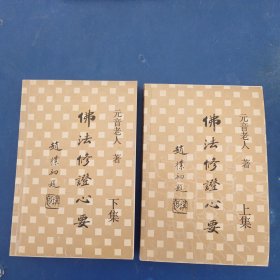 元音老人 著
佛法修證心要
趙樸初題
下集
元音老人 著
佛法修證心要
趙樸初題
上集